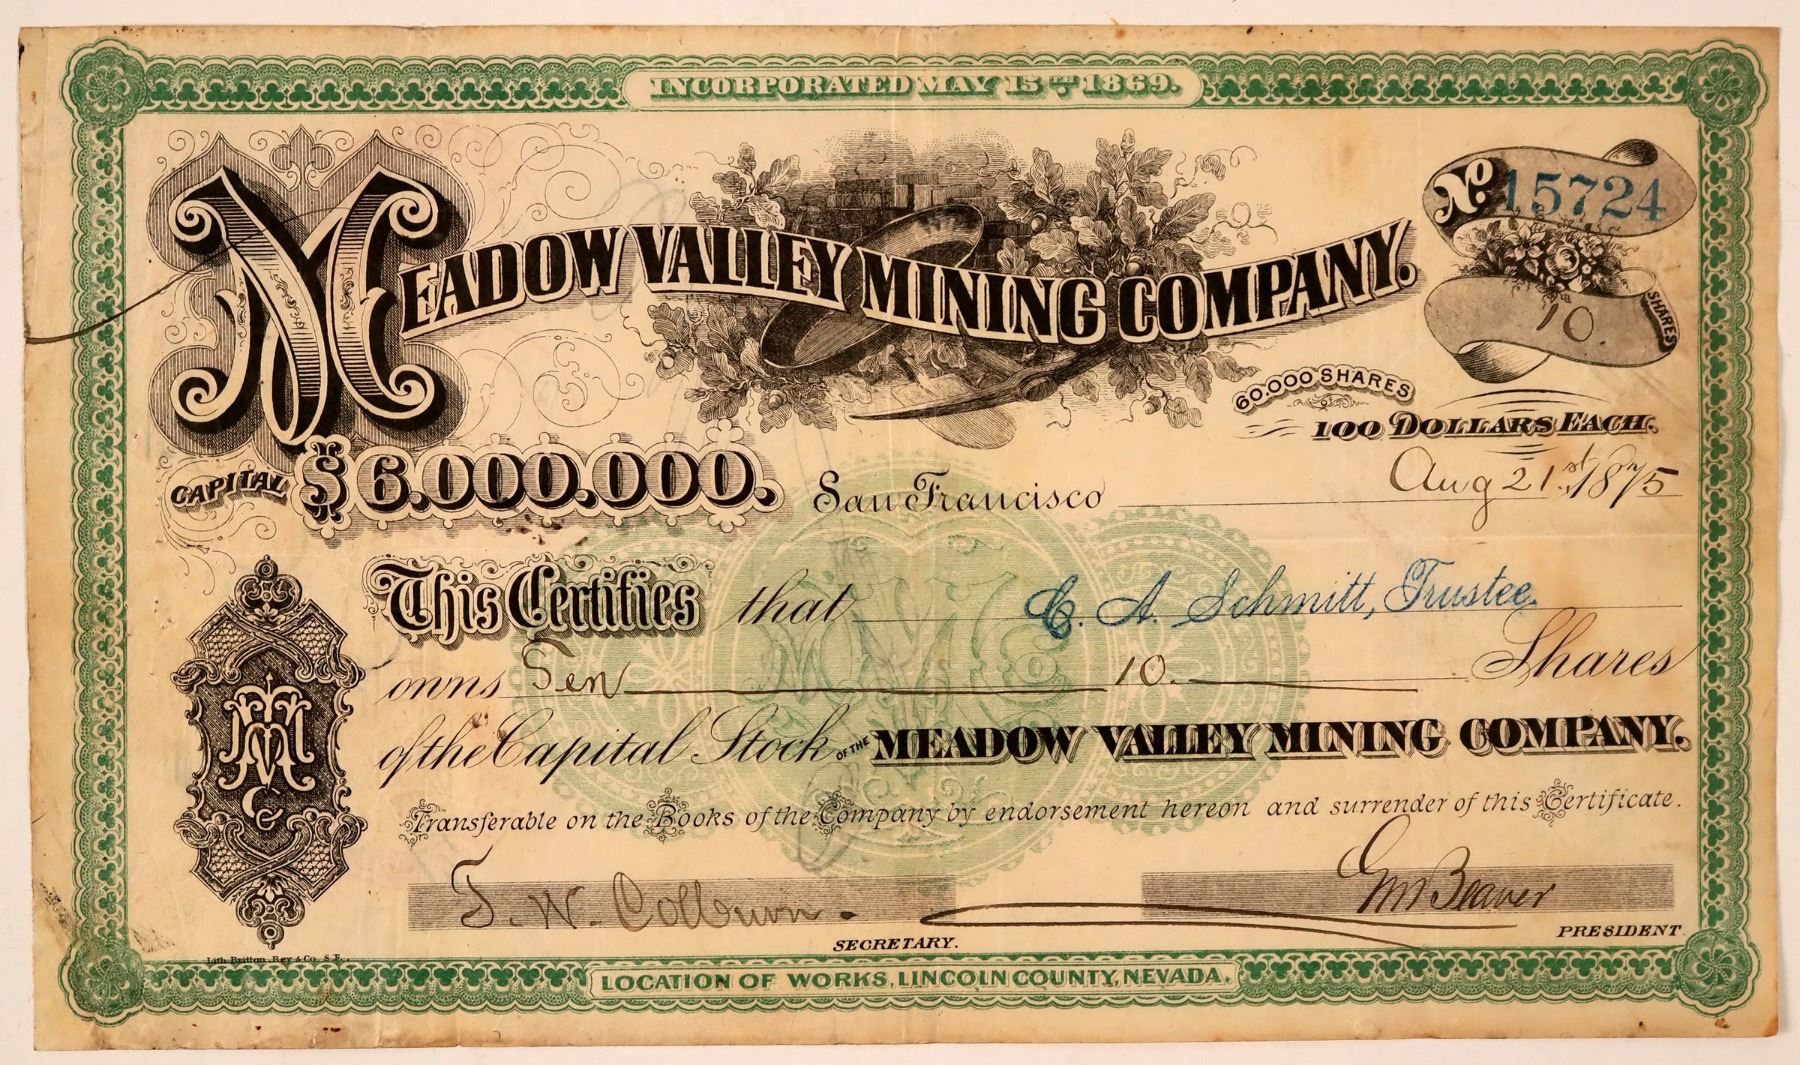 INCORPORATED MAY 15TH 1869.
MEADOW VALLEY MINING COMPANY.
No. 15724
10 SHARES
60.000 SHARES
100 DOLLARS EACH.
CAPITAL $6.000.000.
San Francisco Aug 21st 1875
This Certifies that C. A. Schmitt, Trustee.
owns Ten 10. Shares
of the Capital Stock OF THE MEADOW VALLEY MINING COMPANY.
Transferable on the Books of the Company by endorsement hereon and surrender of this Certificate.
T. W. Colburn.
SECRETARY.
Beaver
PRESIDENT
Lith. Britton, Rey & Co. S.F.
LOCATION OF WORKS, LINCOLN COUNTY, NEVADA.